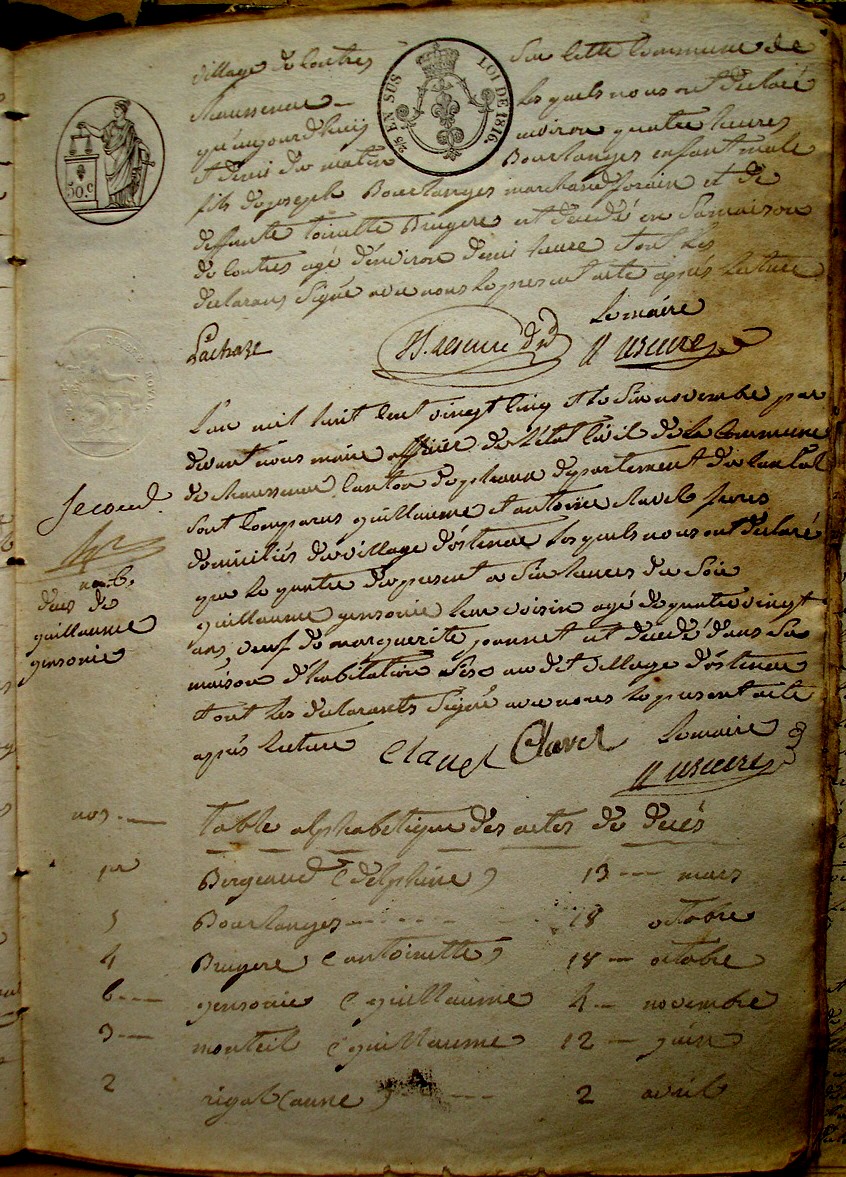 village de Contres sur cette commune de
Chaussenac lesquels nous ont déclaré
qu'aujourd'huij environ quatre heures
et demi du matin Bourlanges enfant male
fils de joseph Bourlanges marchand forain et de
deffunte toinette Bruyere est décédé en sa maison
de Contres agé d'environ demi heure dont les
déclarans signé avec nous le present acte après lecture
50.c
2/5 EN SUS
LOI DE 1816.
Lachaze
Le maire
L'an mil huit cent vingt cinq et le six novembre par
devant nous maire officier de l'état civil de la Commune
de Chaussenac Canton de pleaux département du Cantal
sont comparus guillaume et antoine Clavel freres
domiciliés du village d'ostenac lesquels nous ont déclaré
que le quatre du present a six heures du soir
guillaume gensonie leur voisin agé de quatre vingt
ans veuf de marguerite jonnet est décédé dans sa
maison d'habitation sise au dit village d'ostenac
dont les déclarants signé avec nous le present acte
après lecture
Clavel Clavel
Le maire
Second
deces de
guillaume
gensonie
nos table alphabetique des actes de decés
1er Bergeaud (delphine) 13 mars
5 Bourlanges 18 octobre
4 Bruyere (antoinette) 18 octobre
6 gensonie (guillaume 4 novembre
3 monteil (guillaume 12 juin
2 rigal (anne) 2 avril